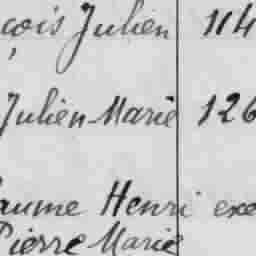 çois Julien 114
Julien-Marie 126
aume Henri exe
Pierre Marie